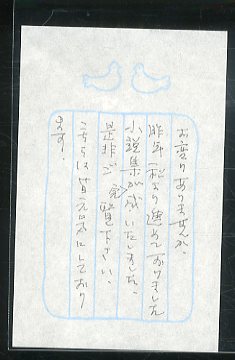 お変りありませんか。
昨年秋より進めておりました
小説集が成いたしました。
是非ご高覧下さい。
こちらは皆元気にしており
ます。